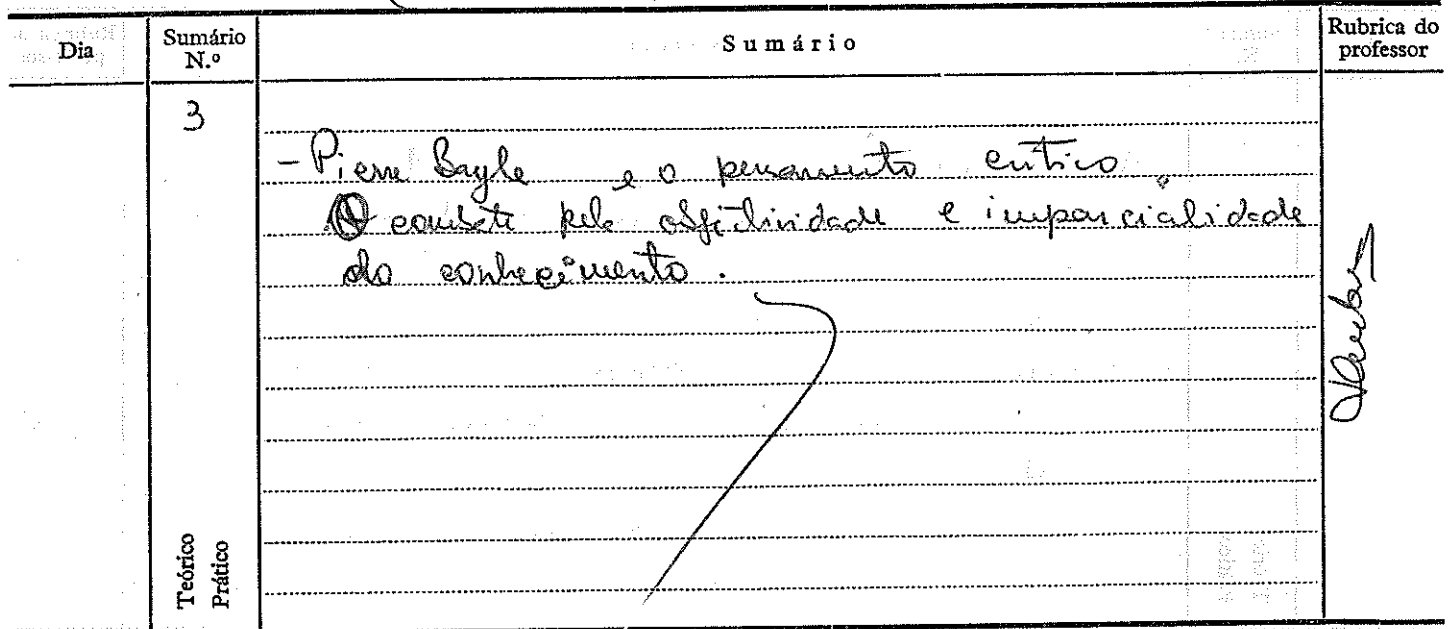 Dia
Sumário N.º
Sumário
Rubrica do professor
3
- Pierre Bayle e o pensamento crítico
O combate pela objetividade e imparcialidade
do conhecimento.
Teórico
Prático